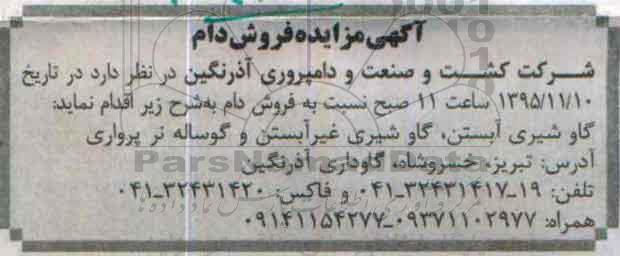 آگهی مزایده فروش دام
شرکت کشت و صنعت و دامپروری آذرنگین در نظر دارد در تاریخ
۱۳۹۵/۱۱/۱۰ ساعت ۱۱ صبح نسبت به فروش دام به‌شرح زیر اقدام نماید:
گاو شیری آبستن، گاو شیری غیرآبستن و گوساله نر پرواری
آدرس: تبریز، خسروشاه، گاوداری آذرنگین
ParsNamadData
تلفن: ۱۹_۳۲۴۳۱۴۱۷_۰۴۱ و فاکس: ۳۲۴۳۱۴۲۰_۰۴۱
همراه: ۰۹۳۷۱۱۰۲۹۷۷_۰۹۱۴۱۱۵۴۲۷۷